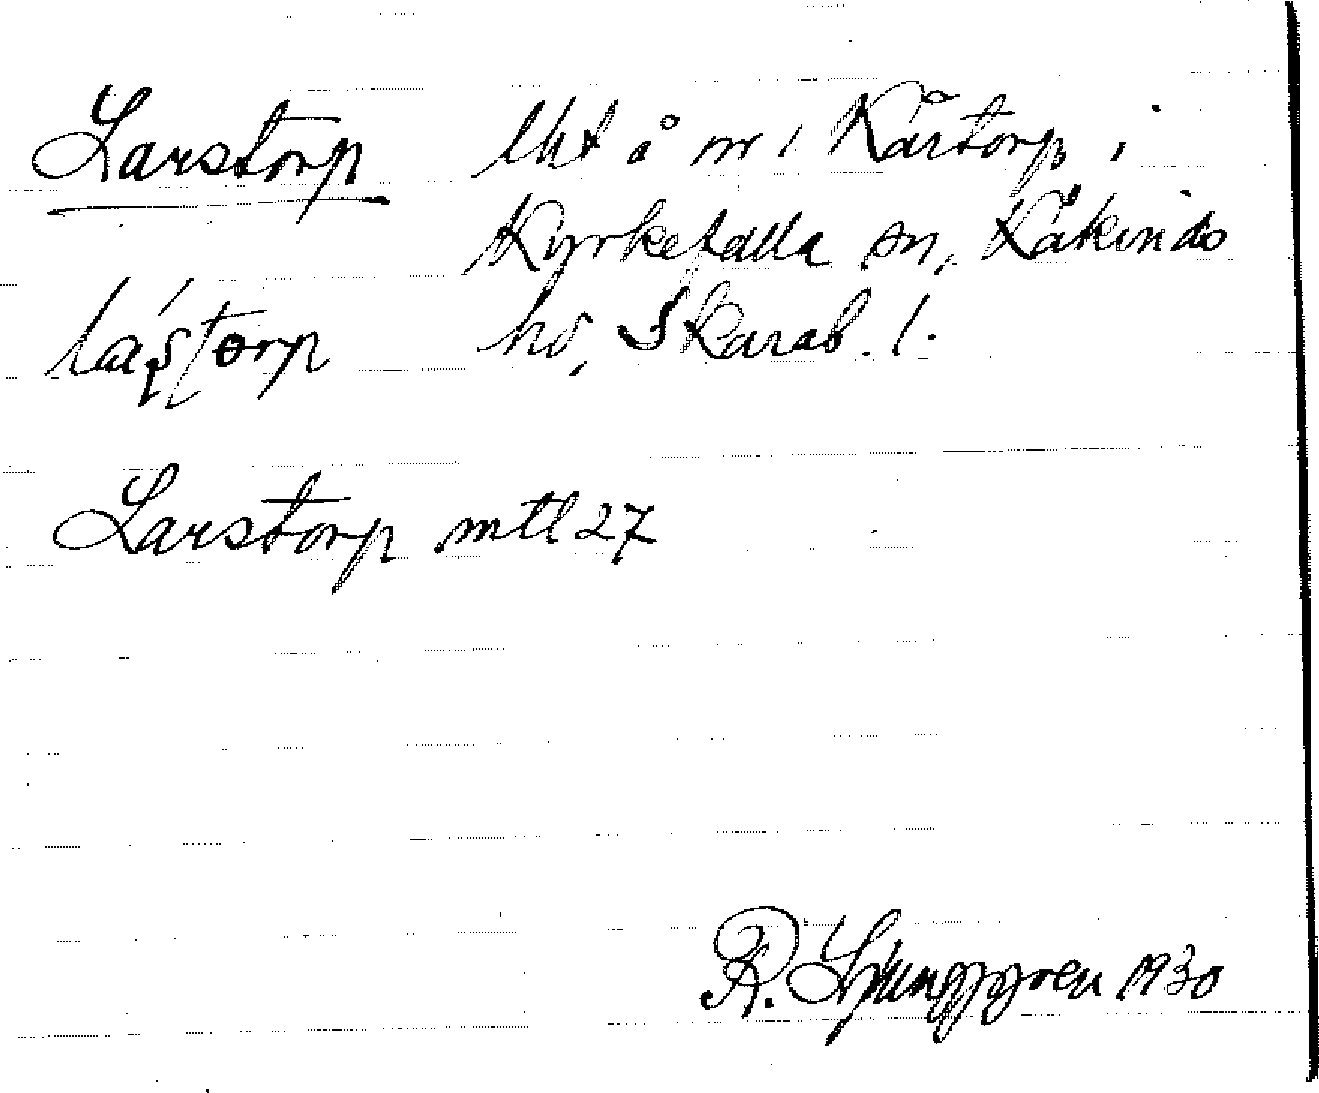 Larstorp lht å nr 1 Kårtorp i
Kyrkefalla sn, Kåkinds
hd, Skarab. l.
Larstorp mtl 27
R. Ljunggren 1930